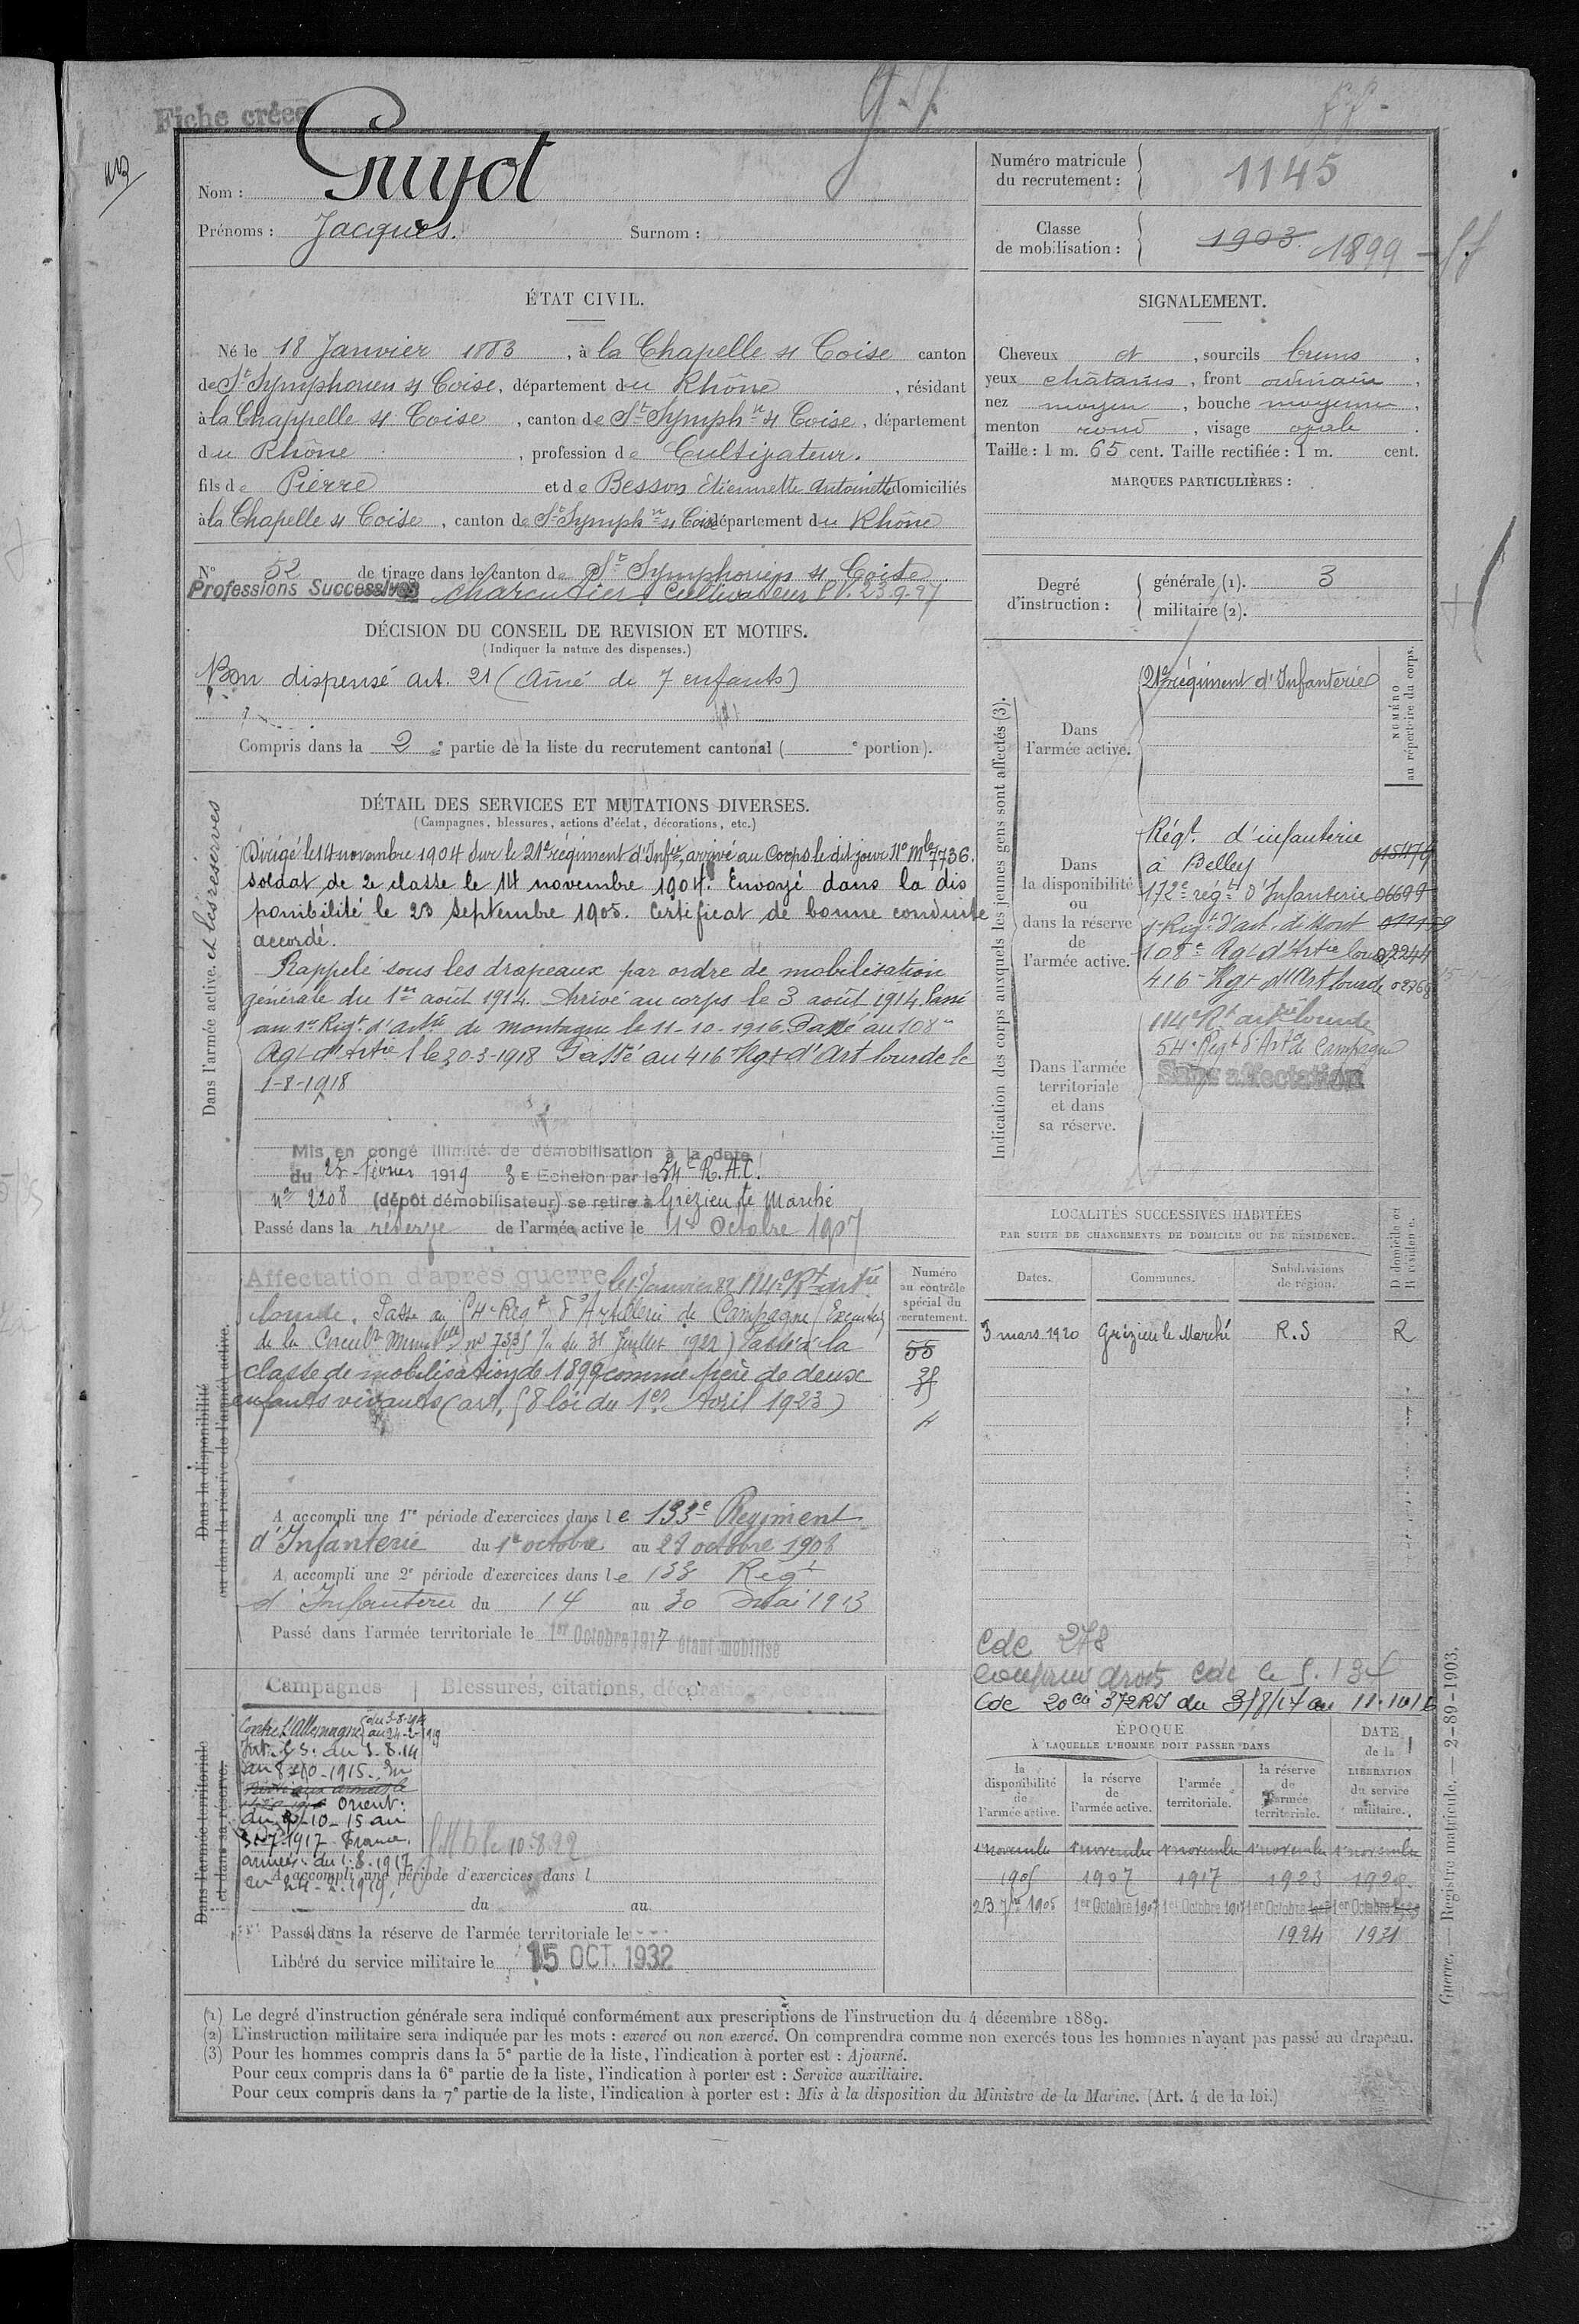 Fiche créée
Nom : Guyot
Prénoms : Jacques. Surnom :
Numéro matricule du recrutement : 1145
Classe de mobilisation : 1903 1899
ÉTAT CIVIL.
Né le 18 Janvier 1883, à la Chapelle s/ Coise canton
de St Symphorien s/ Coise, département du Rhône, résidant
à la Chappelle s/ Coise, canton de St Symph n s/ Coise, département
du Rhône, profession de Cultivateur.
fils de Pierre et de Besson Etiennette Antoinette domiciliés
à la Chapelle s/ Coise, canton de St Symph n s/ Coise département du Rhône
N° 52 de tirage dans le canton de St Symphorien s/ Coise
Professions Successives charcutier Cultivateur PV. 23.9.27
SIGNALEMENT.
Cheveux et, sourcils bruns,
yeux châtains, front ordinaire,
nez moyen, bouche moyenne,
menton rond, visage ovale.
Taille : 1 m. 65 cent. Taille rectifiée : 1 m. cent.
MARQUES PARTICULIÈRES :
Degré d'instruction : générale (1). 3
militaire (2).
DÉCISION DU CONSEIL DE REVISION ET MOTIFS.
(Indiquer la nature des dispenses.)
Bon dispensé art. 21 (Aîné de 7 enfants)
Compris dans la 2e partie de la liste du recrutement cantonal ( e portion).
DÉTAIL DES SERVICES ET MUTATIONS DIVERSES.
(Campagnes, blessures, actions d'éclat, décorations, etc.)
Dans l'armée active. et les réserves
Dirigé le 14 novembre 1904 sur le 21e régiment d'Infie, arrivé au Corps le dit jour N° Mle 7736.
soldat de 2e classe le 14 novembre 1904. Envoyé dans la dis
ponibilité le 23 Septembre 1905. Certificat de bonne conduite
accordé.
Rappelé sous les drapeaux par ordre de mobilisation
générale du 1er août 1914. Arrivé au corps le 3 août 1914. Passé
au 1er Rigt. d'artie de montagne le 11-10-1916. Passé au 108e
Rgt d'Artie l le 30-3-1918 Passé au 416 Rgt d'Art lourde le
1-8-1918
Mis en congé illimité de démobilisation à la date
du 25 février 1919 3E Echelon par le 54e R.A.C.
n° 2208 (dépôt démobilisateur) se retire à Grézieu le Marché
Passé dans la réserve de l'armée active le 1er Octobre 1907
Indication des corps auxquels les jeunes gens sont affectés (3).
NUMÉRO au répertoire du corps.
Dans l'armée active.
21e régiment d'Infanterie
Dans la disponibilité ou dans la réserve de l'armée active.
Régt. d'infanterie
à Belley 015479
172e régt d'Infanterie 06699
1 Rigt d'art. de Mont
108e Rgt d'Artie lourd 02244
416 Rgt d'Art lourde 02768
Dans l'armée territoriale et dans sa réserve.
114e Rt artie lourde
54e Régt d'Art de Campagne
Sans affectation
Dans la disponibilité ou dans la réserve de l'armée active.
Affectation d'après guerre le 1er Janvier 22 114e Rt artie
lourde. Passé au 54e Régt d'Artillerie de Campagne (Exécution
de la Circulre Ministlle n° 7335 /. du 31 Juillet 1922) Passé à la
classe de mobilisation de 1899 comme père de deux
enfants vivants (art. 58 loi du 1er. Avril 1923)
Numéro au contrôle spécial du recrutement.
55
A accompli une 1re période d'exercices dans le 133e Régiment
d'Infanterie du 1er octobre au 28 octobre 1908
A accompli une 2e période d'exercices dans le 133 Régt
d'Infanterie du 14 au 30 Mai 1913
Passé dans l'armée territoriale le 1er Octobre 1917 étant mobilisé
LOCALITÉS SUCCESSIVES HABITÉES
PAR SUITE DE CHANGEMENTS DE DOMICILE OU DE RÉSIDENCE.
D domicile et R résidence.
Dates. Communes. Subdivisions de région.
3 mars 1920 Grézieu le Marché R.S R
Cdc 278
Cdc 20 cie 372 RI du 3/8/14 au 11.10 16
Dans l'armée territoriale et dans sa réserve.
Campagnes Blessures, citations, décorations
Contre l'Allemagne du 3-8-1914 au 24-2-1919
Int. G S. du 3.8.14
au 8-10-1915. En
Orient.
du 9-10-15 au
31-7-1917 France.
armées. du 1.8.1917
au 24-2-1919.
A accompli une période d'exercices dans l
du au
Passé dans la réserve de l'armée territoriale le
Libéré du service militaire le 15 OCT. 1932
ÉPOQUE
À LAQUELLE L'HOMME DOIT PASSER DANS
la disponibilité de l'armée active. la réserve de l'armée active. l'armée territoriale. la réserve de l'armée territoriale.
DATE de la LIBÉRATION du service militaire.
1er novembre 1er novembre 1er novembre 1er novembre 1er novembre
1905 1907 1917 1923 1929
23 7bre 1905 1er Octobre 1907 1er Octobre 1917 1er Octobre 1er Octobre
1924 1931
(1) Le degré d'instruction générale sera indiqué conformément aux prescriptions de l'instruction du 4 décembre 1889.
(2) L'instruction militaire sera indiquée par les mots : exercé ou non exercé. On comprendra comme non exercés tous les hommes n'ayant pas passé au drapeau.
(3) Pour les hommes compris dans la 5e partie de la liste, l'indication à porter est : Ajourné.
Pour ceux compris dans la 6e partie de la liste, l'indication à porter est : Service auxiliaire.
Pour ceux compris dans la 7e partie de la liste, l'indication à porter est : Mis à la disposition du Ministre de la Marine. (Art. 4 de la loi.)
Guerre. — Registre matricule. — 2-89-1903.